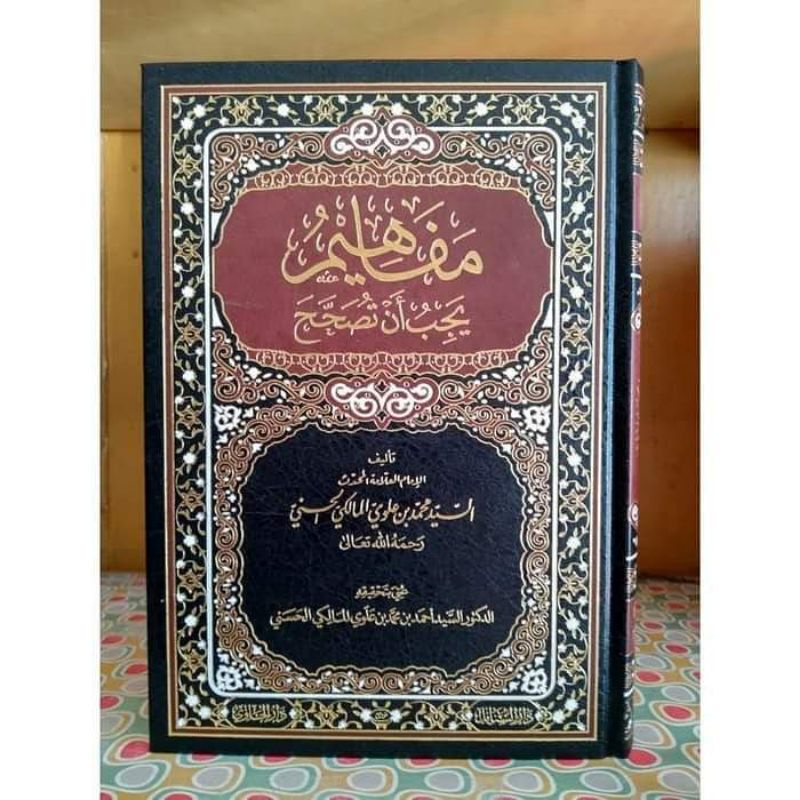 مَفَاهِيمُ
يَجِبُ أَنْ تُصَحَّحَ
تأليف
الإمام العلامة المحدث
السيد محمد بن علوي المالكي الحسني
رحمه الله تعالى
عني بتحقيقه
الدكتور السيد أحمد بن محمد بن علوي المالكي الحسني